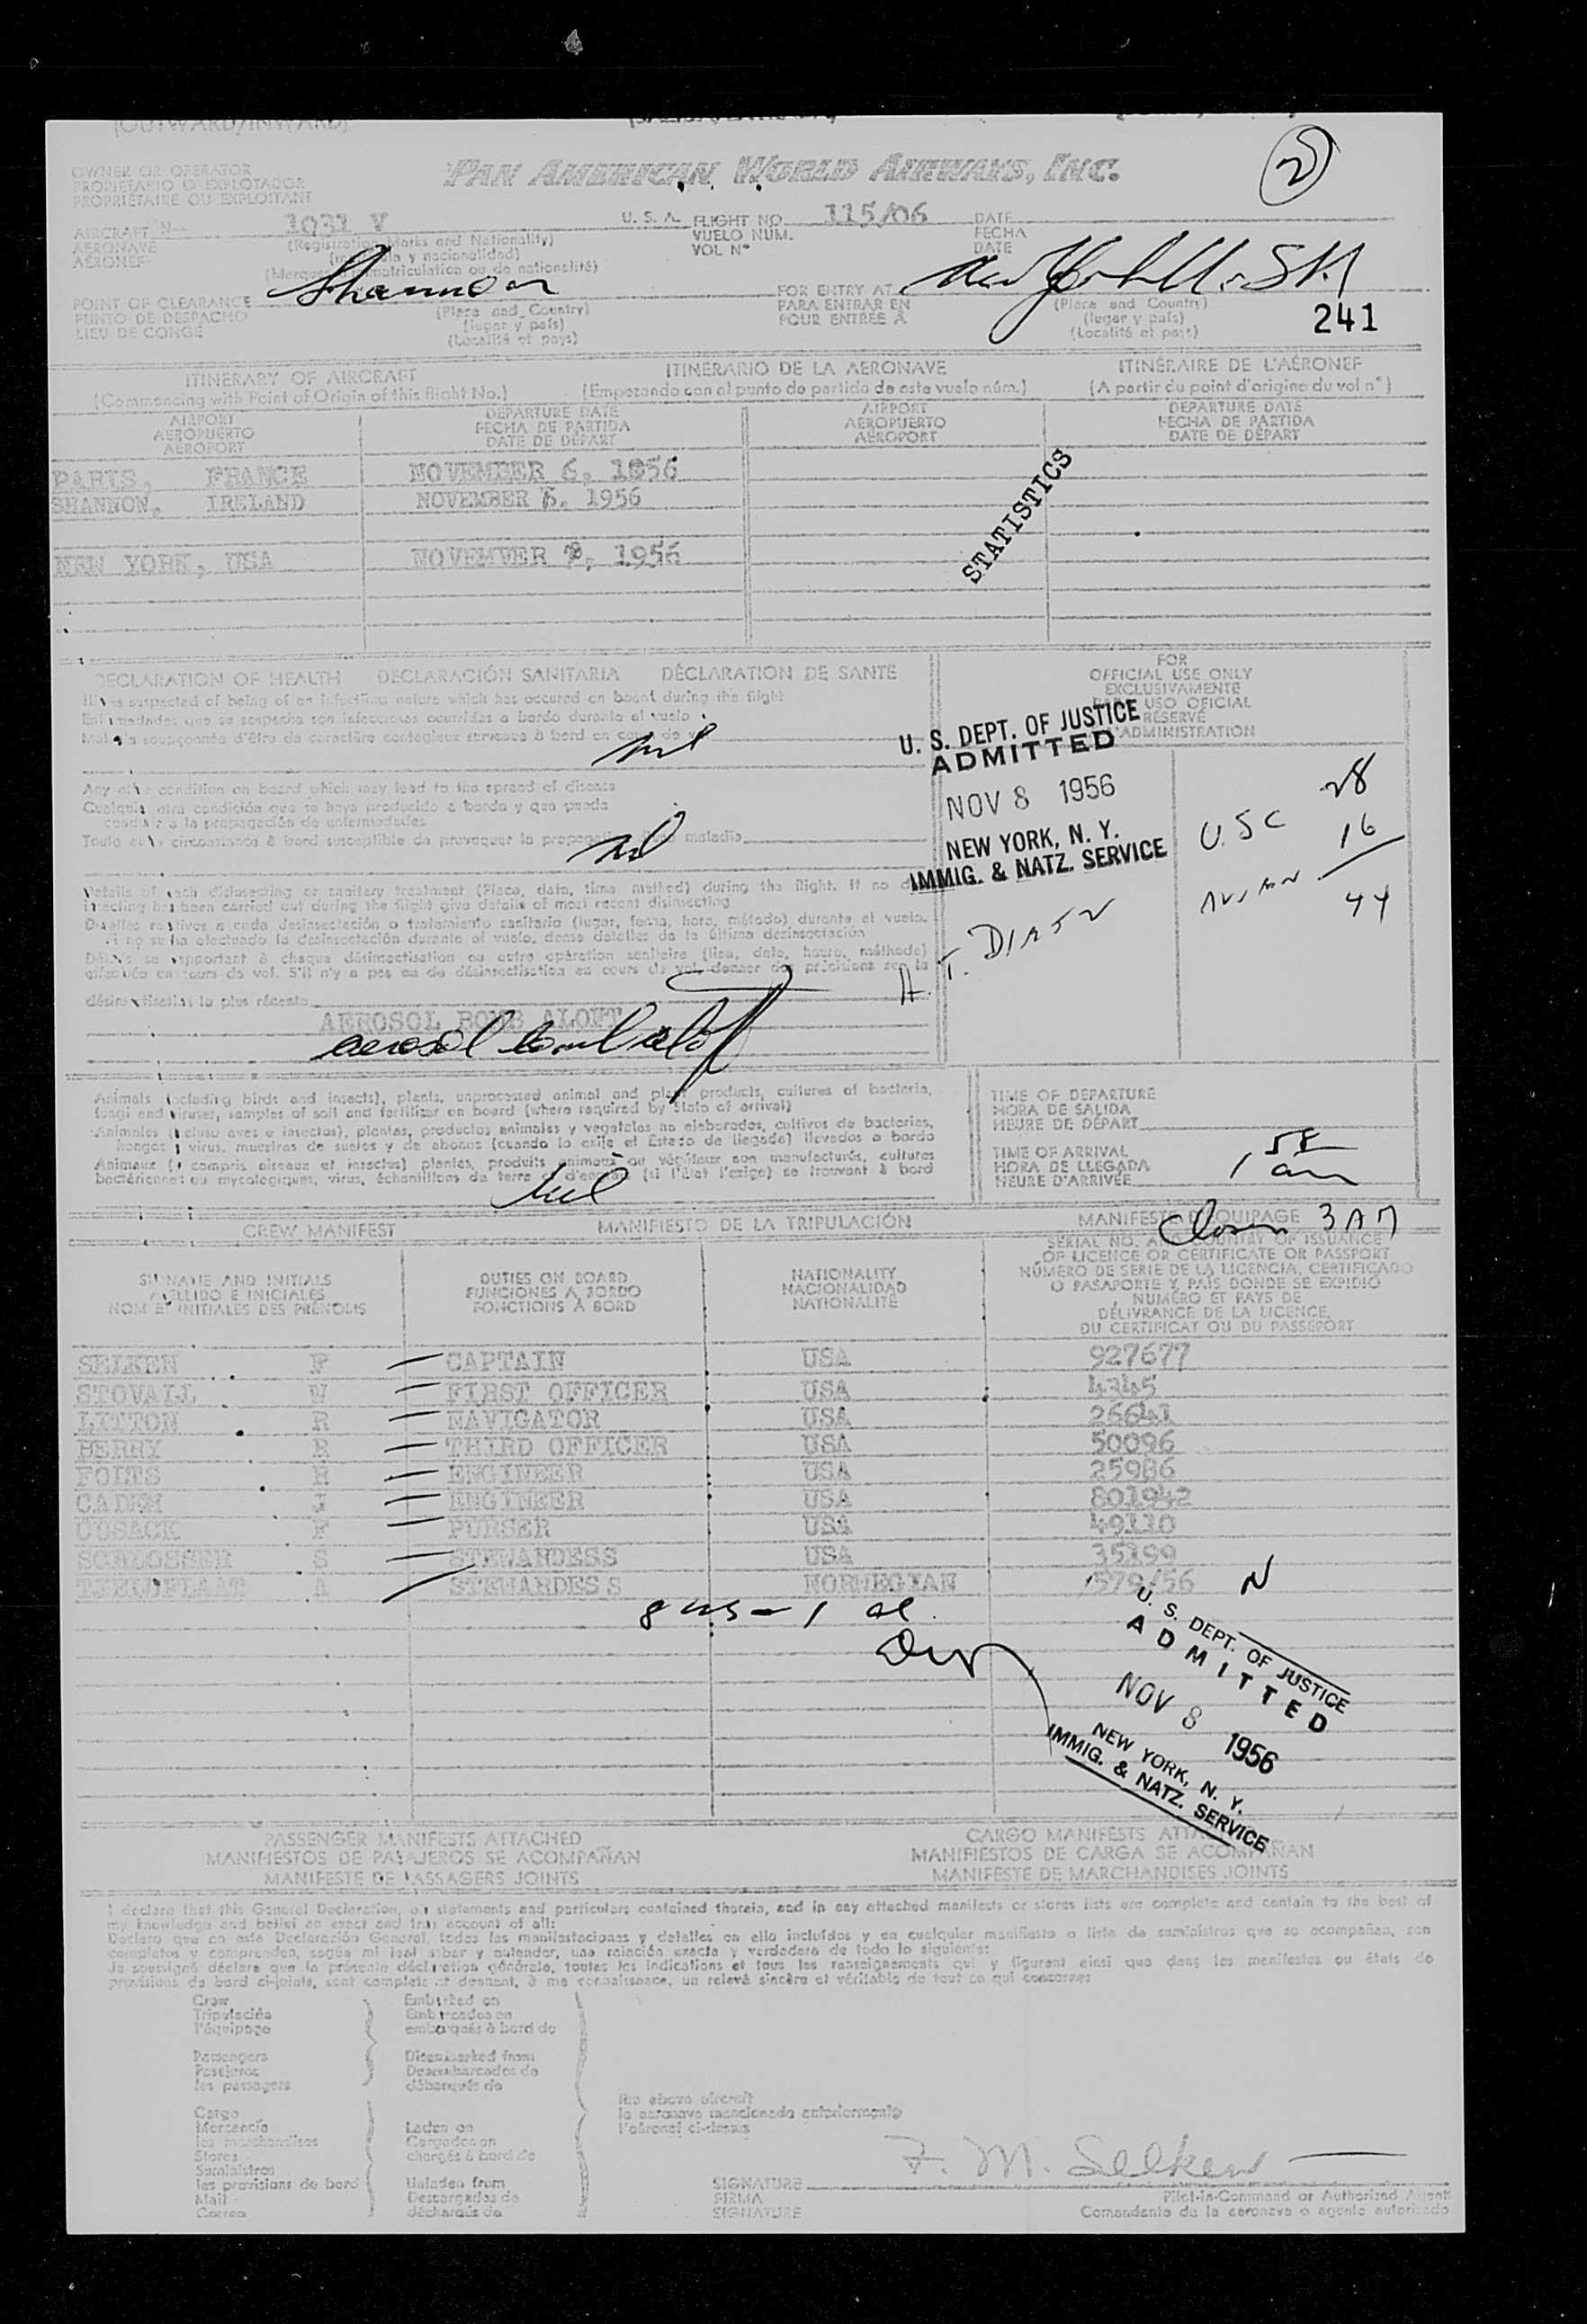 (OUTWARD/INWARD)
OWNER OR OPERATOR
PROPIETARIO O EXPLOTADOR
PROPRIÉTAIRE OU EXPLOITANT
PAN AMERICAN WORLD AIRWAYS, INC.
2
AIRCRAFT N- 1031 V U. S. A. FLIGHT NO. 115/06 DATE
AERONAVE (Registration Marks and Nationality) VUELO NUM. FECHA
AÉRONEF VOL N° DATE
POINT OF CLEARANCE Shannon FOR ENTRY AT New York U.S.A
PUNTO DE DESPACHO (Place and Country) PARA ENTRAR EN (Place and Country)
LIEU DE CONGÉ (lugar y país) POUR ENTRÉE À (lugar y país)
(Localité et pays) (Localité et pays)
241
ITINERARY OF AIRCRAFT ITINERARIO DE LA AERONAVE ITINÉRAIRE DE L'AÉRONEF
(Commencing with Point of Origin of this flight No.) (Empezando con el punto de partida de este vuelo núm.) (A partir du point d'origine du vol n°)
AIRPORT DEPARTURE DATE AIRPORT DEPARTURE DATE
AEROPUERTO FECHA DE PARTIDA AEROPUERTO FECHA DE PARTIDA
AÉROPORT DATE DE DÉPART AÉROPORT DATE DE DÉPART
PARIS, FRANCE NOVEMBER 6, 1956
SHANNON, IRELAND NOVEMBER 1956
NEW YORK, USA NOVEMVER 1956
STATISTICS
DECLARATION OF HEALTH DECLARACIÓN SANITARIA DÉCLARATION DE SANTÉ
FOR
OFFICIAL USE ONLY
EXCLUSIVAMENTE
USO OFICIAL
RÉSERVÉ
L'ADMINISTRATION
suspected of being of an infectious nature which has occured on board during the flight
que se sospecha son infecciosas ocurridas a bordo durante el vuelo
soupçonnée d'être de caractère contagieux survenue à bord en cours de
nil
U. S. DEPT. OF JUSTICE
ADMITTED
NOV 8 1956
NEW YORK, N. Y.
IMMIG. & NATZ. SERVICE
28
USC 16
44
Any other condition on board which may lead to the spread of disease
Cualquier otra condición que se haya producido a bordo y que pueda
conducir a la propagación de enfermedades
Toute autre circonstance à bord susceptible de provoquer la propagation maladie
nil
Details of each disinsecting or sanitary treatment (Place, date, time method) during the flight. If no
insecting has been carried out during the flight give details of most recent disinsecting
Detalles relativos a cada desinsectación o tratamiento sanitario (lugar, fecha, hora, método) durante el vuelo.
Si no se ha efectuado la desinsectación durante el vuelo, dense detalles de la última desinsectación
se rapportant à chaque désinsectisation ou autre opération sanitaire (lieu, date, heure, méthode)
effectuée en cours de vol. S'il n'y a pas eu de désinsectisation en cours de vol donner des précisions sur la
désinsectisation la plus récente
AEROSOL BOMB ALOFT
aerosol bomb aloft
Animals (including birds and insects), plants, unprocessed animal and plant products, cultures of bacteria,
fungi and viruses, samples of soil and fertilizer on board (where required by State of arrival)
Animales (incluso aves e insectos), plantas, productos animales y vegetales no elaborados, cultivos de bacterias,
hongos y virus, muestras de suelos y de abonos (cuando lo exija el Estado de llegada) llevados a bordo
Animaux (y compris oiseaux et insectes) plantes, produits animaux ou végétaux non manufacturés, cultures
bactériennes ou mycologiques, virus, échantillons de terre (si l'État l'exige) se trouvant à bord
nil
TIME OF DEPARTURE
HORA DE SALIDA
HEURE DE DÉPART
TIME OF ARRIVAL
HORA DE LLEGADA
HEURE D'ARRIVÉE
3 AM
CREW MANIFEST MANIFIESTO DE LA TRIPULACIÓN MANIFESTE D'ÉQUIPAGE
SURNAME AND INITIALS
APELLIDO E INICIALES
NOM ET INITIALES DES PRÉNOMS
DUTIES ON BOARD
FUNCIONES A BORDO
FONCTIONS À BORD
NATIONALITY
NACIONALIDAD
NATIONALITÉ
SERIAL NO. AND COUNTRY OF ISSUANCE
OF LICENCE OR CERTIFICATE OR PASSPORT
NÚMERO DE SERIE DE LA LICENCIA, CERTIFICADO
O PASAPORTE Y PAÍS DONDE SE EXPIDIÓ
NUMÉRO ET PAYS DE
DÉLIVRANCE DE LA LICENCE,
DU CERTIFICAT OU DU PASSEPORT
SELKEN F CAPTAIN USA 927677
STOVALL W FIRST OFFICER USA 4345
LITTON R NAVIGATOR USA 26641
BERRY R THIRD OFFICER USA 50096
FOLTS H ENGINEER USA 25986
CADEN J ENGINEER USA 801942
CUSACK F PURSER USA 49110
SCHLOSSER S STEWARDESS USA 35199
TJELDFLAAT A STEWARDESS NORWEGIAN 1579/56 N
8 us - 1 al
U. S. DEPT. OF JUSTICE
ADMITTED
NOV 8 1956
NEW YORK, N. Y.
IMMIG. & NATZ. SERVICE
PASSENGER MANIFESTS ATTACHED
MANIFIESTOS DE PASAJEROS SE ACOMPAÑAN
MANIFESTE DE PASSAGERS JOINTS
CARGO MANIFESTS ATTACHED
MANIFIESTOS DE CARGA SE ACOMPAÑAN
MANIFESTE DE MARCHANDISES JOINTS
I declare that this General Declaration, all statements and particulars contained therein, and in any attached manifests or stores lists are complete and contain to the best of
my knowledge and belief an exact and true account of all:
Declaro que en esta Declaración General, todas las manifestaciones y detalles en ello incluídos y en cualquier manifiesto o lista de suministros que se acompañan, son
completos y comprenden, según mi leal saber y entender, una relación exacta y verdadera de todo lo siguiente:
Je soussigné déclare que la présente déclaration générale, toutes les indications et tous les renseignements qui y figurent ainsi que dans les manifestes ou états de
provisions de bord ci-joints, sont complets et donnent, à ma connaissance, un relevé sincère et véritable de tout ce qui concerne:
Crew
Tripulación
l'équipage
Passengers
Pasajeros
les passagers
Embarked on
Embarcados en
embarqués à bord de
Disembarked from
Desembarcados de
débarqués de
Cargo
Mercancía
les marchandises
Stores
Suministros
les provisions de bord
Mail
Correo
Laden on
Cargados en
chargés à bord de
Unladen from
Descargados de
déchargés de
the above aircraft
la aeronave mencionada anteriormente
l'aéronef ci-dessus
F. M. Selken
SIGNATURE
FIRMA
SIGNATURE
Pilot-in-Command or Authorized Agent
Comandante de la aeronave o agente autorizado